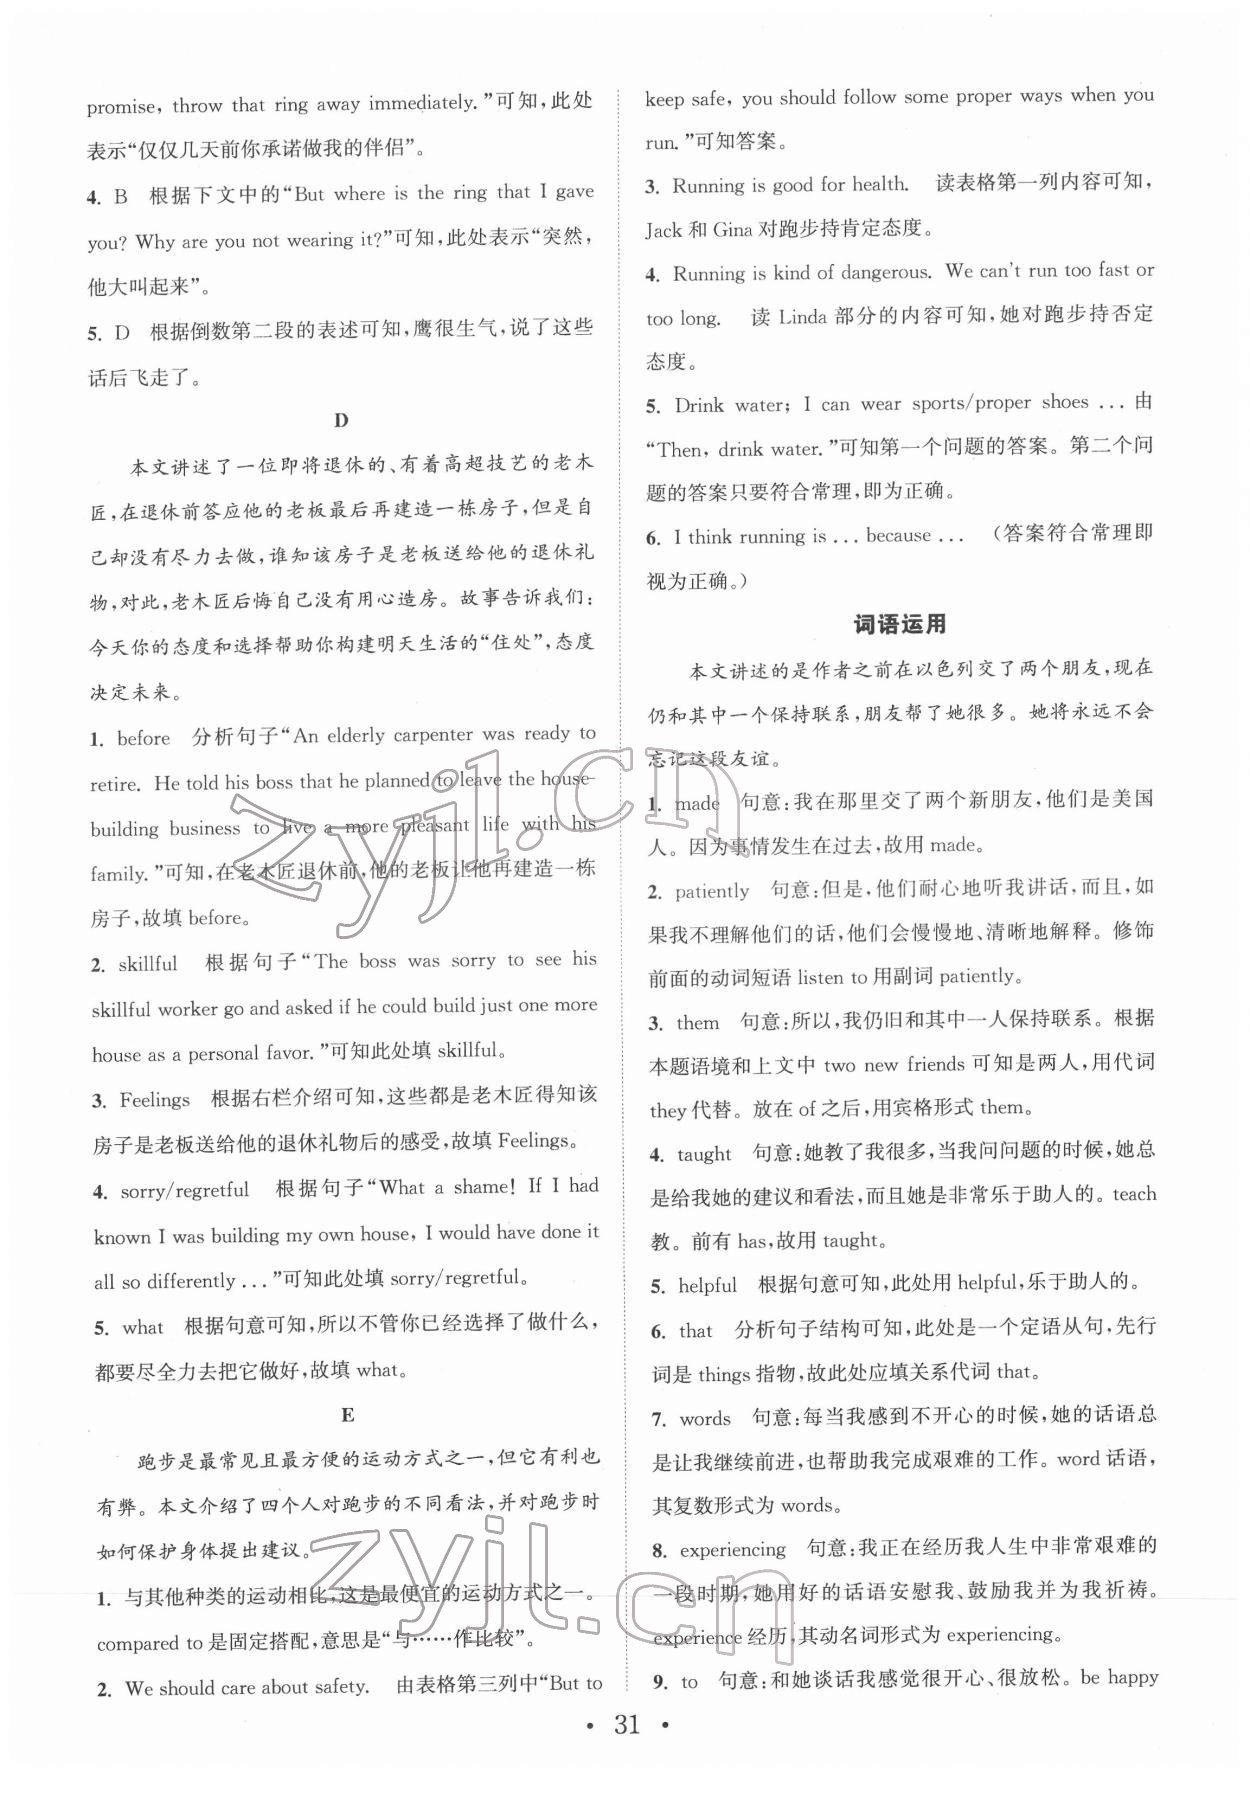 promise, throw that ring away immediately.”可知,此处
表示“仅仅几天前你承诺做我的伴侣”。
4. B 根据下文中的“But where is the ring that I gave
you? Why are you not wearing it?”可知,此处表示“突然,
他大叫起来”。
5. D 根据倒数第二段的表述可知,鹰很生气,说了这些
话后飞走了。
D
本文讲述了一位即将退休的、有着高超技艺的老木
匠,在退休前答应他的老板最后再建造一栋房子,但是自
己却没有尽力去做,谁知该房子是老板送给他的退休礼
物,对此,老木匠后悔自己没有用心造房。故事告诉我们:
今天你的态度和选择帮助你构建明天生活的“住处”,态度
决定未来。
1. before 分析句子“An elderly carpenter was ready to
retire. He told his boss that he planned to leave the house-
building business to live a more pleasant life with his
family.”可知,在老木匠退休前,他的老板让他再建造一栋
房子,故填 before。
2. skillful 根据句子“The boss was sorry to see his
skillful worker go and asked if he could build just one more
house as a personal favor.”可知此处填 skillful。
3. Feelings 根据右栏介绍可知,这些都是老木匠得知该
房子是老板送给他的退休礼物后的感受,故填 Feelings。
4. sorry/regretful 根据句子“What a shame! If I had
known I was building my own house, I would have done it
all so differently ...”可知此处填 sorry/regretful。
5. what 根据句意可知,所以不管你已经选择了做什么,
都要尽全力去把它做好,故填 what。
E
跑步是最常见且最方便的运动方式之一,但它有利也
有弊。本文介绍了四个人对跑步的不同看法,并对跑步时
如何保护身体提出建议。
1. 与其他种类的运动相比,这是最便宜的运动方式之一。
compared to 是固定搭配,意思是“与……作比较”。
2. We should care about safety. 由表格第三列中“But to
keep safe, you should follow some proper ways when you
run.”可知答案。
3. Running is good for health. 读表格第一列内容可知,
Jack 和 Gina 对跑步持肯定态度。
4. Running is kind of dangerous. We can't run too fast or
too long. 读 Linda 部分的内容可知,她对跑步持否定
态度。
5. Drink water; I can wear sports/proper shoes ... 由
“Then, drink water.”可知第一个问题的答案。第二个问
题的答案只要符合常理,即为正确。
6. I think running is ... because ... (答案符合常理即
视为正确。)
词语运用
本文讲述的是作者之前在以色列交了两个朋友,现在
仍和其中一个保持联系,朋友帮了她很多。她将永远不会
忘记这段友谊。
1. made 句意:我在那里交了两个新朋友,他们是美国
人。因为事情发生在过去,故用 made。
2. patiently 句意:但是,他们耐心地听我讲话,而且,如
果我不理解他们的话,他们会慢慢地、清晰地解释。修饰
前面的动词短语 listen to 用副词 patiently。
3. them 句意:所以,我仍旧和其中一人保持联系。根据
本题语境和上文中 two new friends 可知是两人,用代词
they 代替。放在 of 之后,用宾格形式 them。
4. taught 句意:她教了我很多,当我问问题的时候,她总
是给我她的建议和看法,而且她是非常乐于助人的。teach
教。前有 has,故用 taught。
5. helpful 根据句意可知,此处用 helpful,乐于助人的。
6. that 分析句子结构可知,此处是一个定语从句,先行
词是 things 指物,故此处应填关系代词 that。
7. words 句意:每当我感到不开心的时候,她的话语总
是让我继续前进,也帮助我完成艰难的工作。word 话语,
其复数形式为 words。
8. experiencing 句意:我正在经历我人生中非常艰难的
一段时期,她用好的话语安慰我、鼓励我并为我祈祷。
experience 经历,其动名词形式为 experiencing。
9. to 句意:和她谈话我感觉很开心、很放松。be happy
• 31 •
zyjl.cn
zyjl.cn